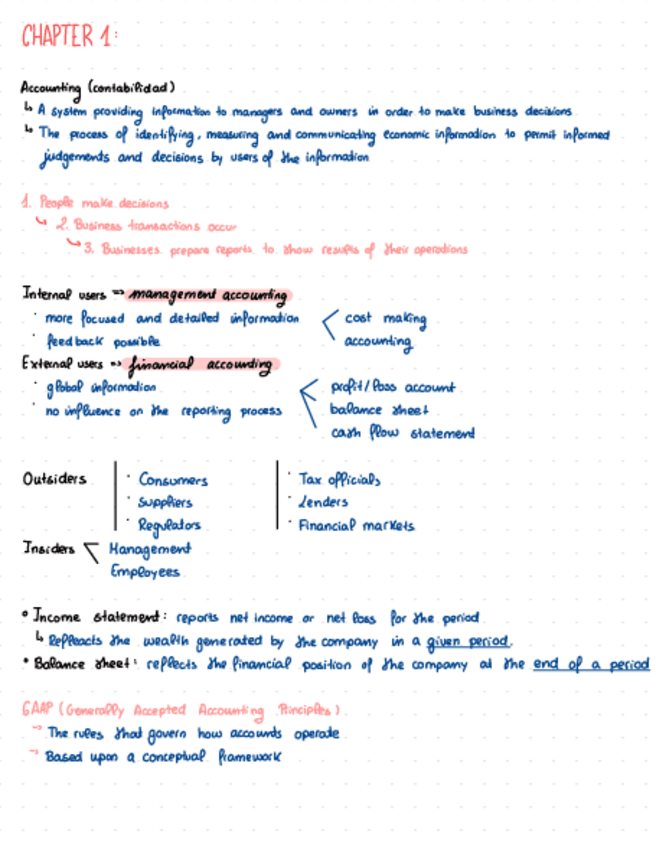 CHAPTER 1:
Accounting (contabilidad)
↳ A system providing information to managers and owners in order to make business decisions
↳ The process of identifying, measuring and communicating economic information to permit informed
judgements and decisions by users of the information
1. People make decisions
↳ 2. Business transactions occur
↳ 3. Businesses prepare reports to show results of their operations
Internal users => management accounting
· more focused and detailed information < cost making
· feedback possible accounting
External users => financial accounting
· global information < profit/loss account
· no influence on the reporting process balance sheet
cash flow statement
Outsiders | · Consumers | · Tax officials
· Suppliers · Lenders
· Regulators · Financial markets
Insiders < Management
Employees
• Income statement: reports net income or net loss for the period
↳ Reflects the wealth generated by the company in a given period.
• Balance sheet: reflects the financial position of the company at the end of a period
GAAP (Generally Accepted Accounting Principles)
→ The rules that govern how accounts operate
→ Based upon a conceptual framework